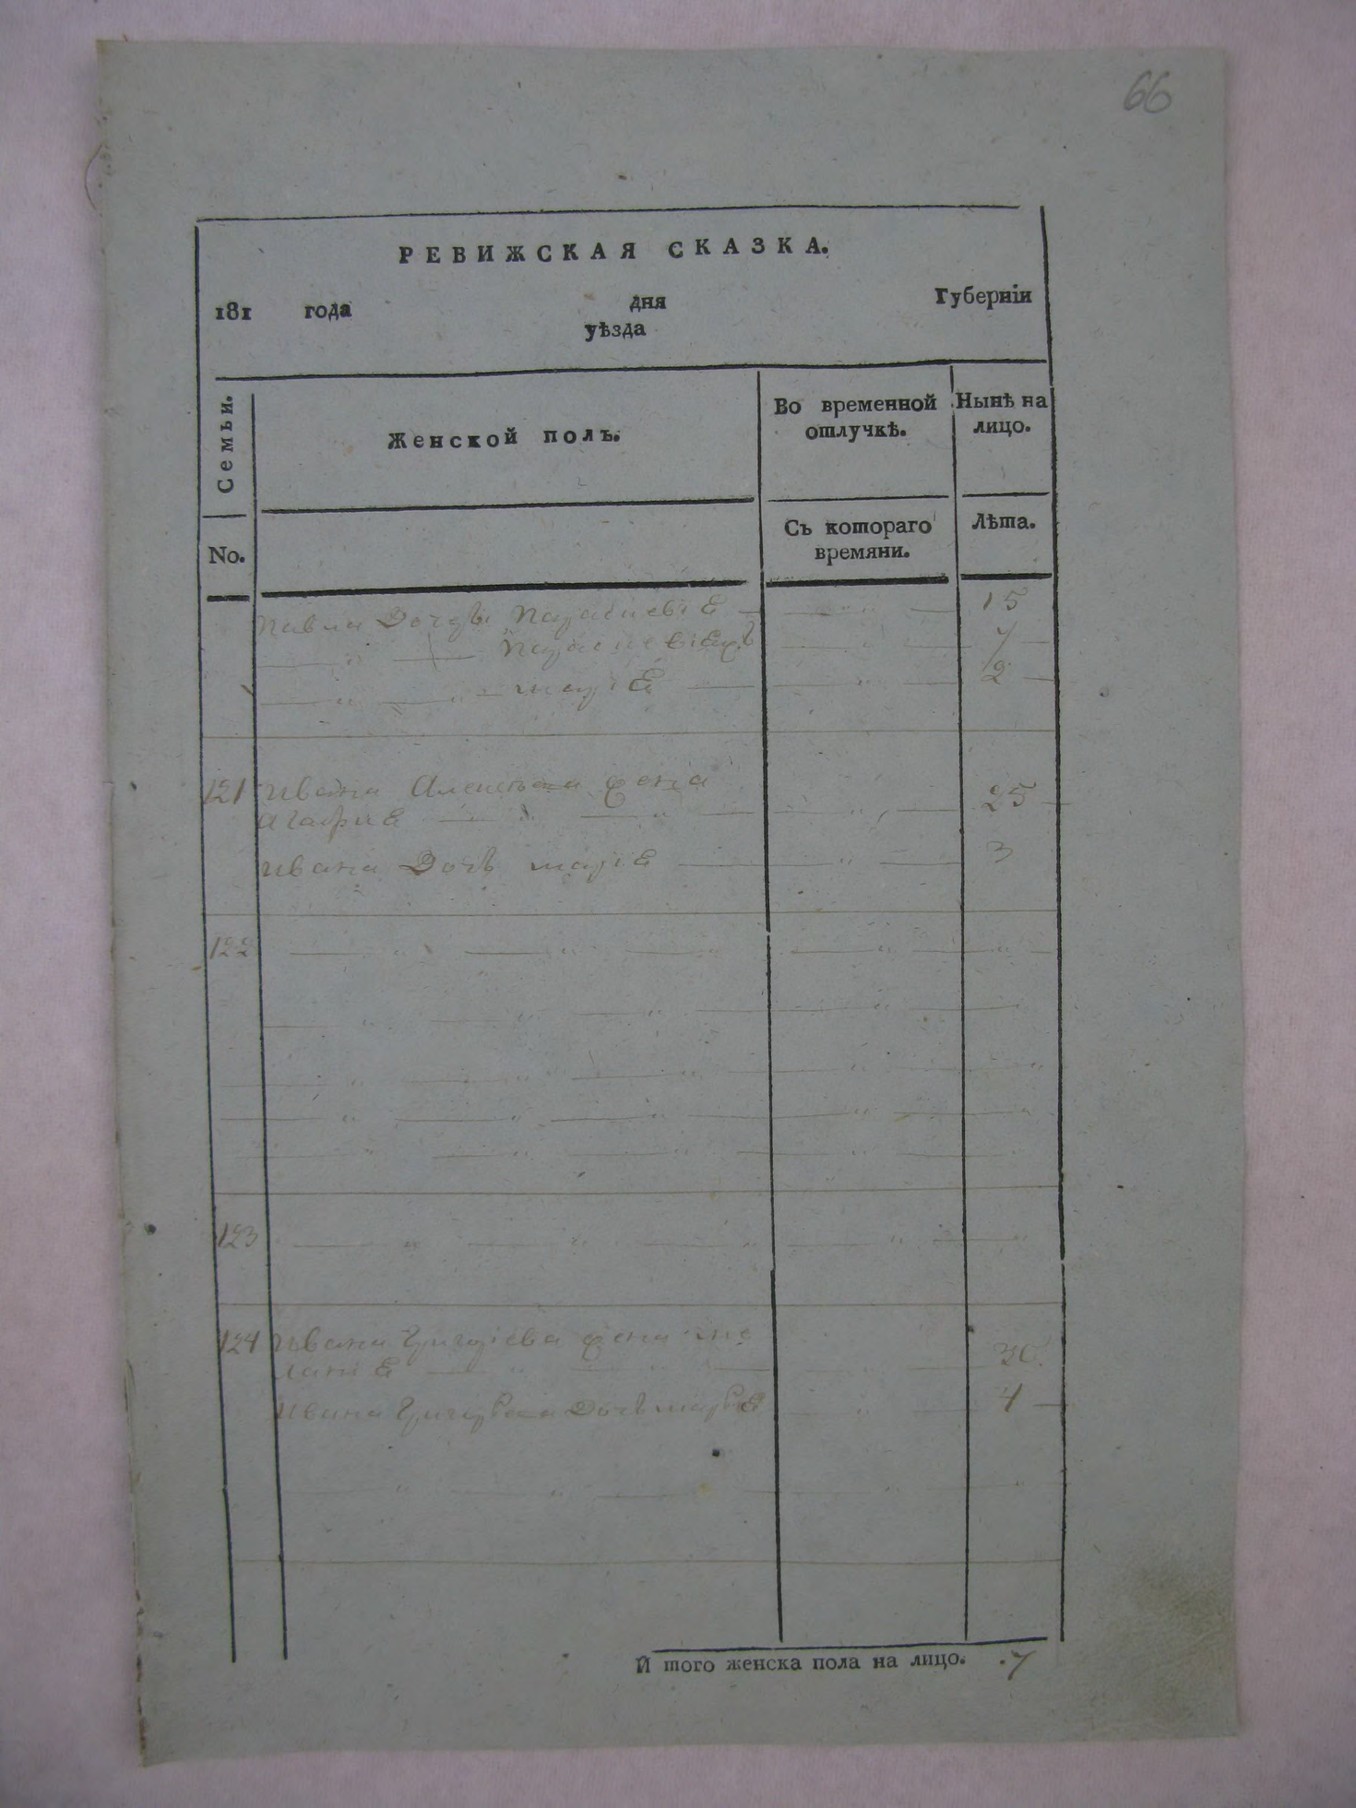 66
РЕВИЖСКАЯ СКАЗКА.
181 года дня Губерніи
уѣзда
Семьи.
Женской полъ.
Во временной
отлучкѣ.
Нынѣ на
лицо.
No.
Съ котораго
времяни.
Лѣта.
Павла Дочеръ 15
7
маріѣ 2
121 Ивана Алексѣева жена
агафиѣ 25
Ивана Дочь маріѣ 3
122
123
124 Ивана Григорієва жена ме
ланіѣ 30
Ивана Григорієва Дочь маріѣ 4
И того женска пола на лицо. 7